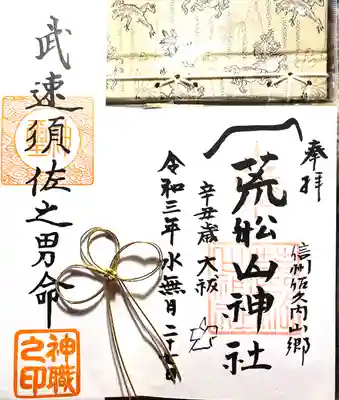 奉拝
信州佐久内山郷
荒船山神社
辛丑歳 大祓
令和三年水無月二十一日
武速須佐之男命
神職之印